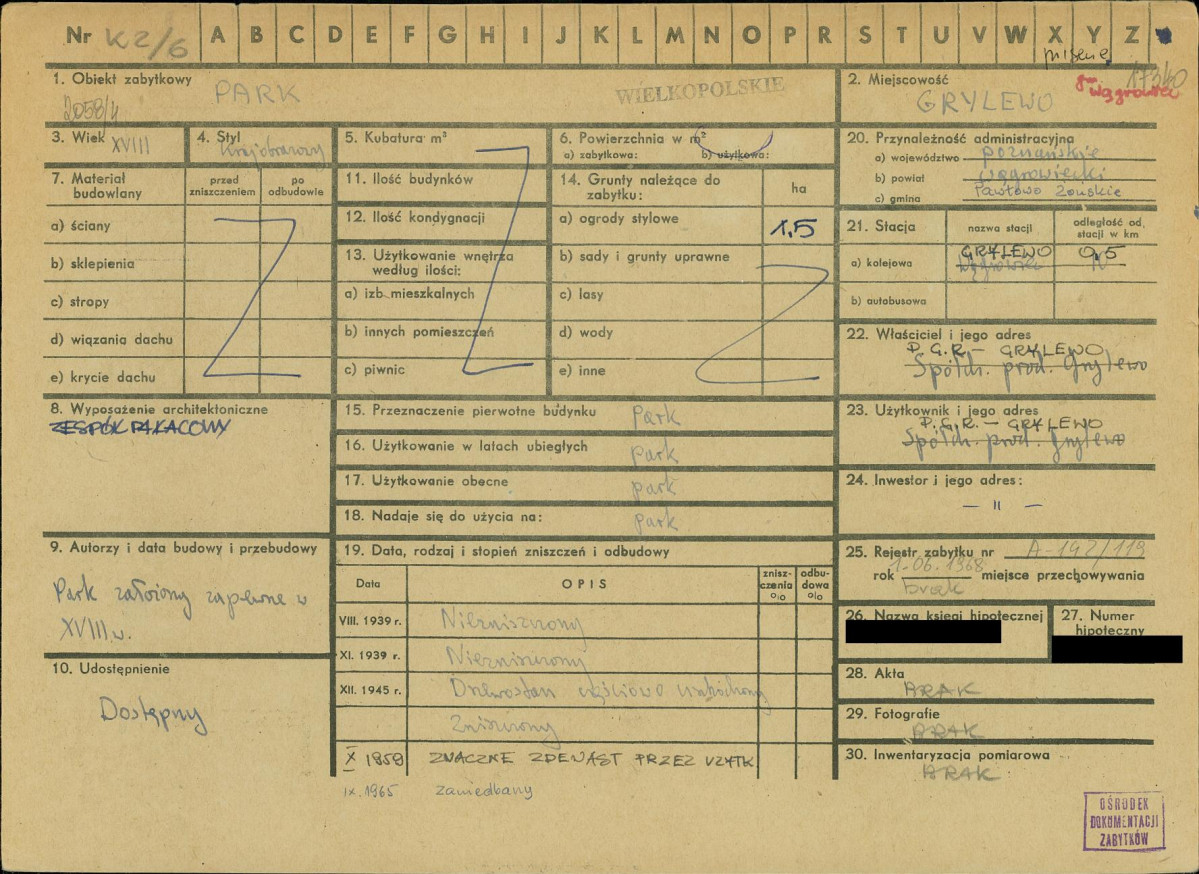 Nr K2/6 A B C D E F G H I J K L M N O P R S T U V W X Y Z
17340
1. Obiekt zabytkowy PARK
2058/4
WIELKOPOLSKIE
2. Miejscowość GRYLEWO
gm. Wągrowiec
3. Wiek XVIII
4. Styl Krajobrazowy
5. Kubatura m³
6. Powierzchnia w m²
a) zabytkowa: b) użytkowa:
7. Materiał budowlany
przed zniszczeniem
po odbudowie
a) ściany
b) sklepienia
c) stropy
d) wiązania dachu
e) krycie dachu
11. Ilość budynków
12. Ilość kondygnacji
13. Użytkowanie wnętrza według ilości:
a) izb mieszkalnych
b) innych pomieszczeń
c) piwnic
14. Grunty należące do zabytku:
ha
a) ogrody stylowe 1,5
b) sady i grunty uprawne
c) lasy
d) wody
e) inne
20. Przynależność administracyjna
a) województwo poznańskie
b) powiat wągrowiecki
c) gmina Pawłowo Żońskie
21. Stacja
nazwa stacji
odległość od stacji w km
a) kolejowa GRYLEWO 0,5
Wągrowiec
b) autobusowa
22. Właściciel i jego adres
P.G.R. – GRYLEWO
Spółdz. prod. Grylewo
23. Użytkownik i jego adres
P.G.R. – GRYLEWO
Spółdz. prod. Grylewo
24. Inwestor i jego adres:
— " —
8. Wyposażenie architektoniczne
ZESPÓŁ PAŁACOWY
15. Przeznaczenie pierwotne budynku park
16. Użytkowanie w latach ubiegłych park
17. Użytkowanie obecne park
18. Nadaje się do użycia na: park
9. Autorzy i data budowy i przebudowy
Park założony zapewne w
XVIII w.
10. Udostępnienie
Dostępny
19. Data, rodzaj i stopień zniszczeń i odbudowy
Data
OPIS
zniszczenia %
odbudowa %
VIII. 1939 r. Niezniszczony
XI. 1939 r. Niezniszczony
XII. 1945 r. Drzewostan częściowo uszkodzony
Zniszczony
X 1959 ZNACZNE ZDEWAST PRZEZ UŻYTK
IX. 1965 zaniedbany
25. Rejestr zabytku nr A-192/119
1.06.1968
rok brak miejsce przechowywania
26. Nazwa księgi hipotecznej
27. Numer hipoteczny
28. Akta BRAK
29. Fotografie BRAK
30. Inwentaryzacja pomiarowa
BRAK
OŚRODEK
DOKUMENTACJI
ZABYTKÓW